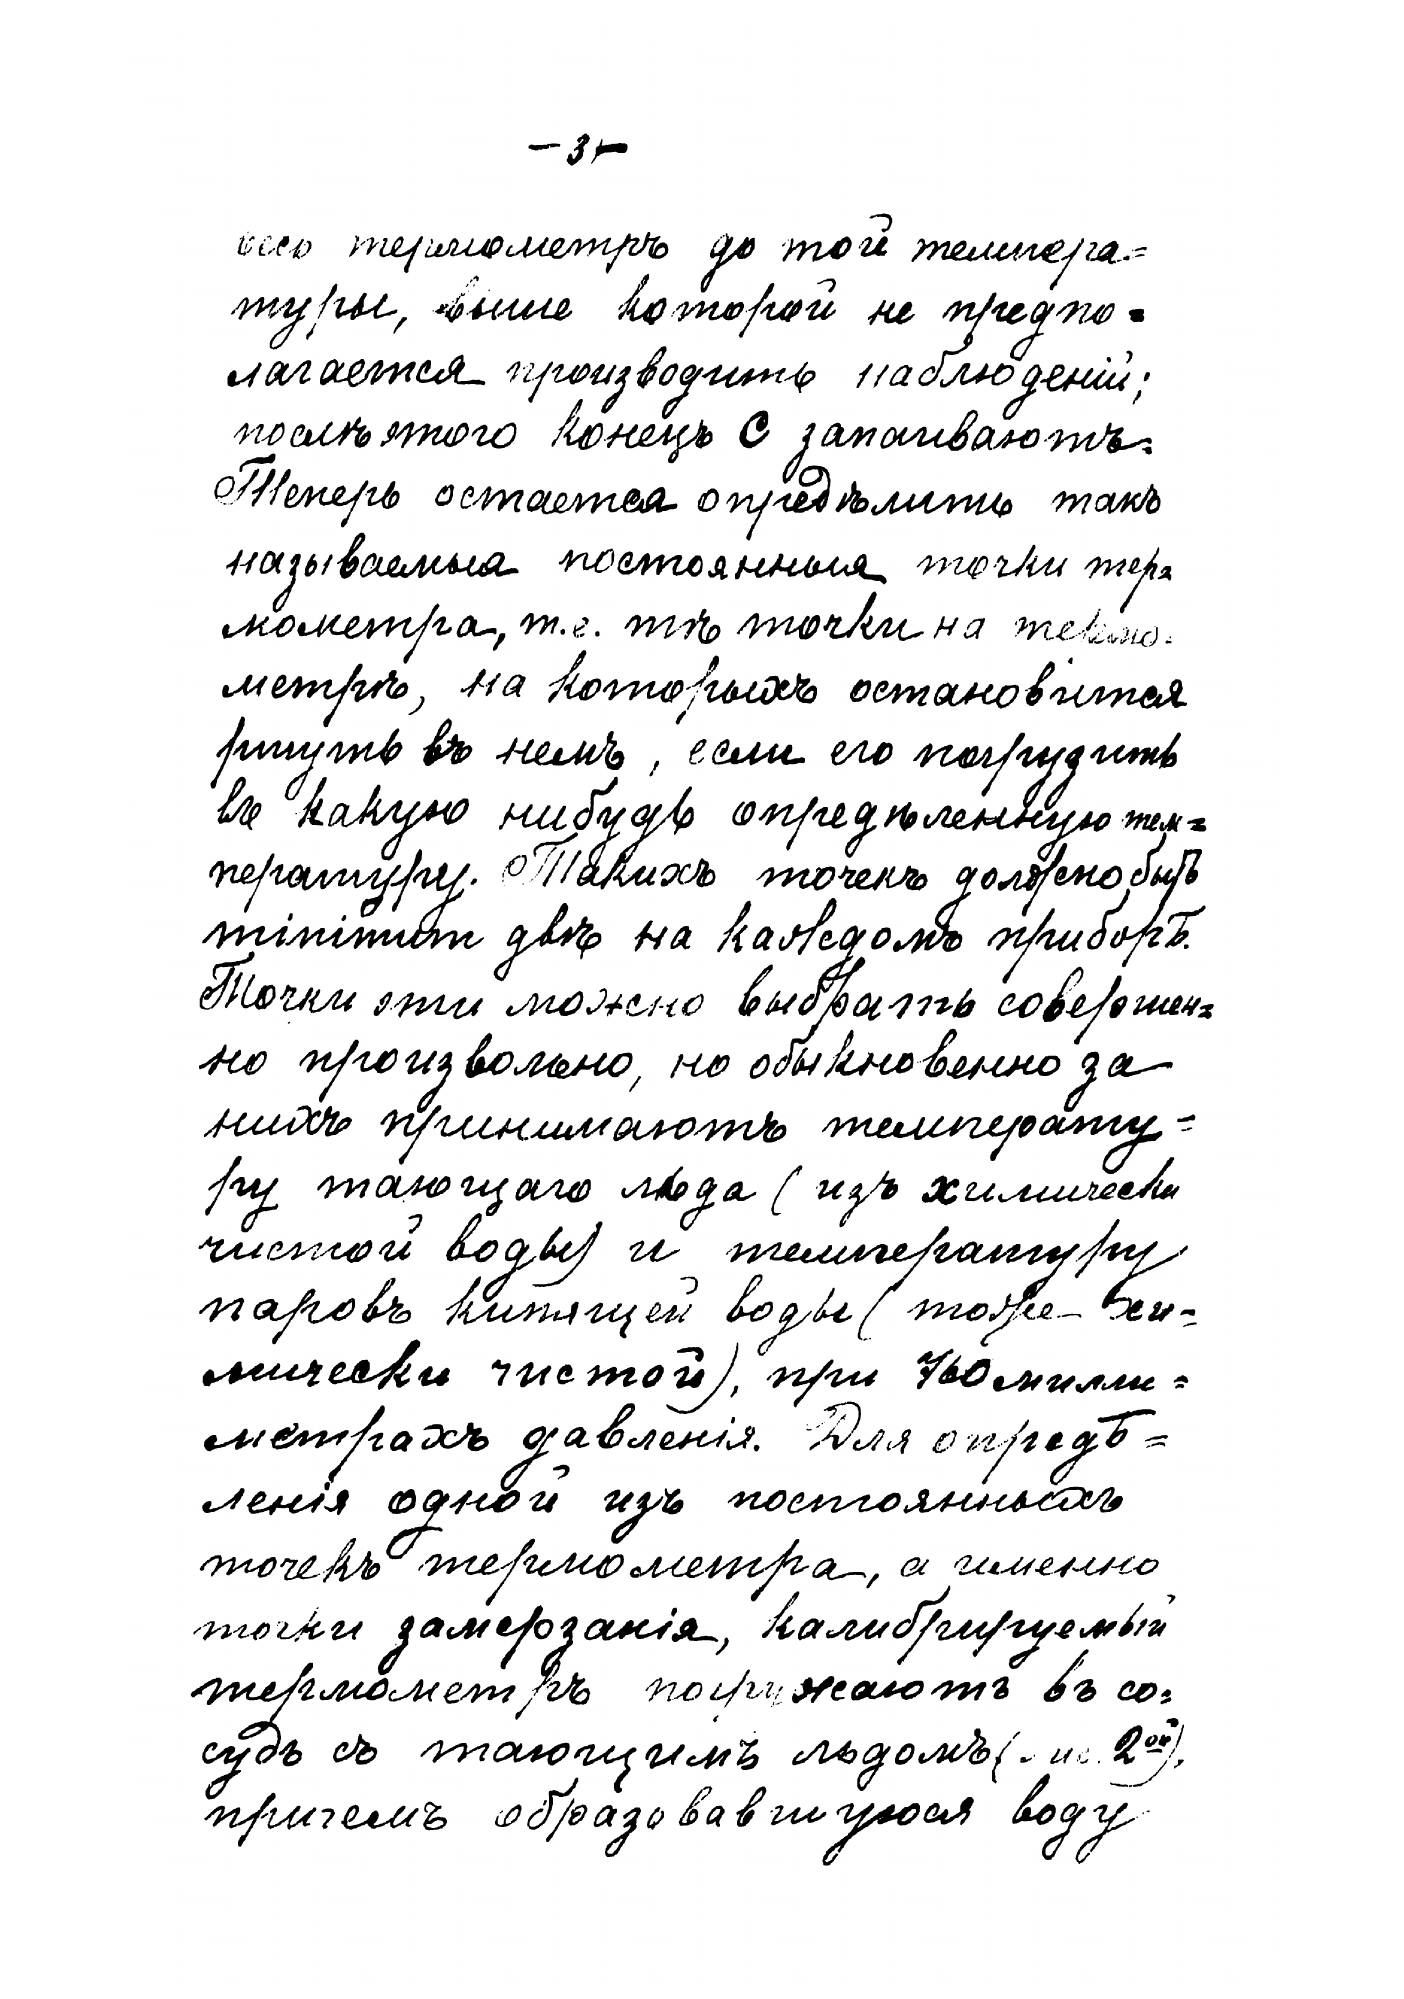 — 3 —
весь термометръ до той темпера=
туры, выше которой не предпо=
лагается производить наблюденій;
послѣ этого конецъ С запаиваютъ.
Теперь остается опредѣлить такъ
называемыя постоянныя точки тер=
мометра, т.е. тѣ точки на термо=
метрѣ, на которыхъ остановится
ртуть въ немъ, если его погрузить
въ какую нибудь опредѣленную тем=
пературу. Такихъ точекъ должно быть
minimum двѣ на каждомъ приборѣ.
Точки эти можно выбрать совершен=
но произвольно, но обыкновенно за
нихъ принимаютъ температу=
ру тающаго льда (изъ химически
чистой воды) и температуру
паровъ кипящей воды (тоже хи=
мически чистой), при 760 милли=
метрахъ давленія. Для опредѣ=
ленія одной изъ постоянныхъ
точекъ термометра, а именно
точки замерзанія, калибрируемый
термометръ погружаютъ въ со=
судъ съ тающимъ льдомъ ( 2ой),
причемъ образовавшуюся воду